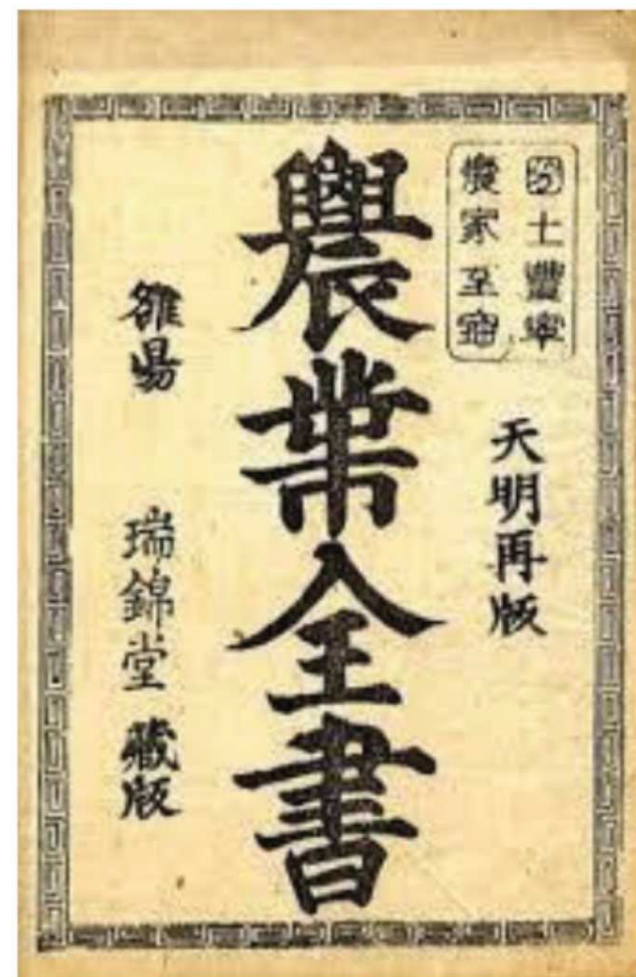 圀土豐寧
農家至寶
天明再版
農業全書
雒昜 瑞錦堂 藏版